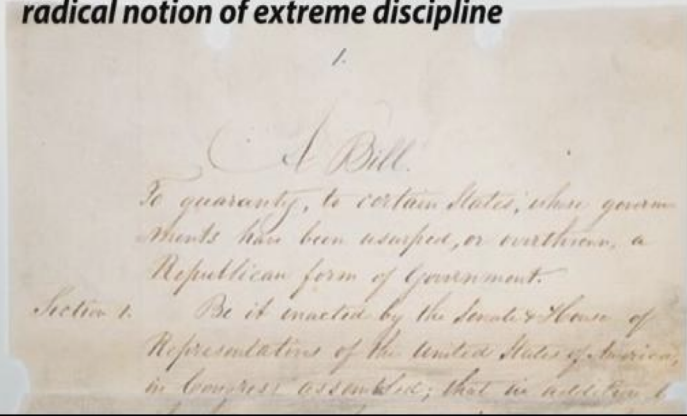 radical notion of extreme discipline
1.
A Bill.
To guaranty, to certain States, whose govern
ments have been usurped, or overthrown, a
Republican form of Government.
Section 1. Be it enacted by the Senate & House of
Representatives of the United States of America,
in Congress assembled; that in addition to